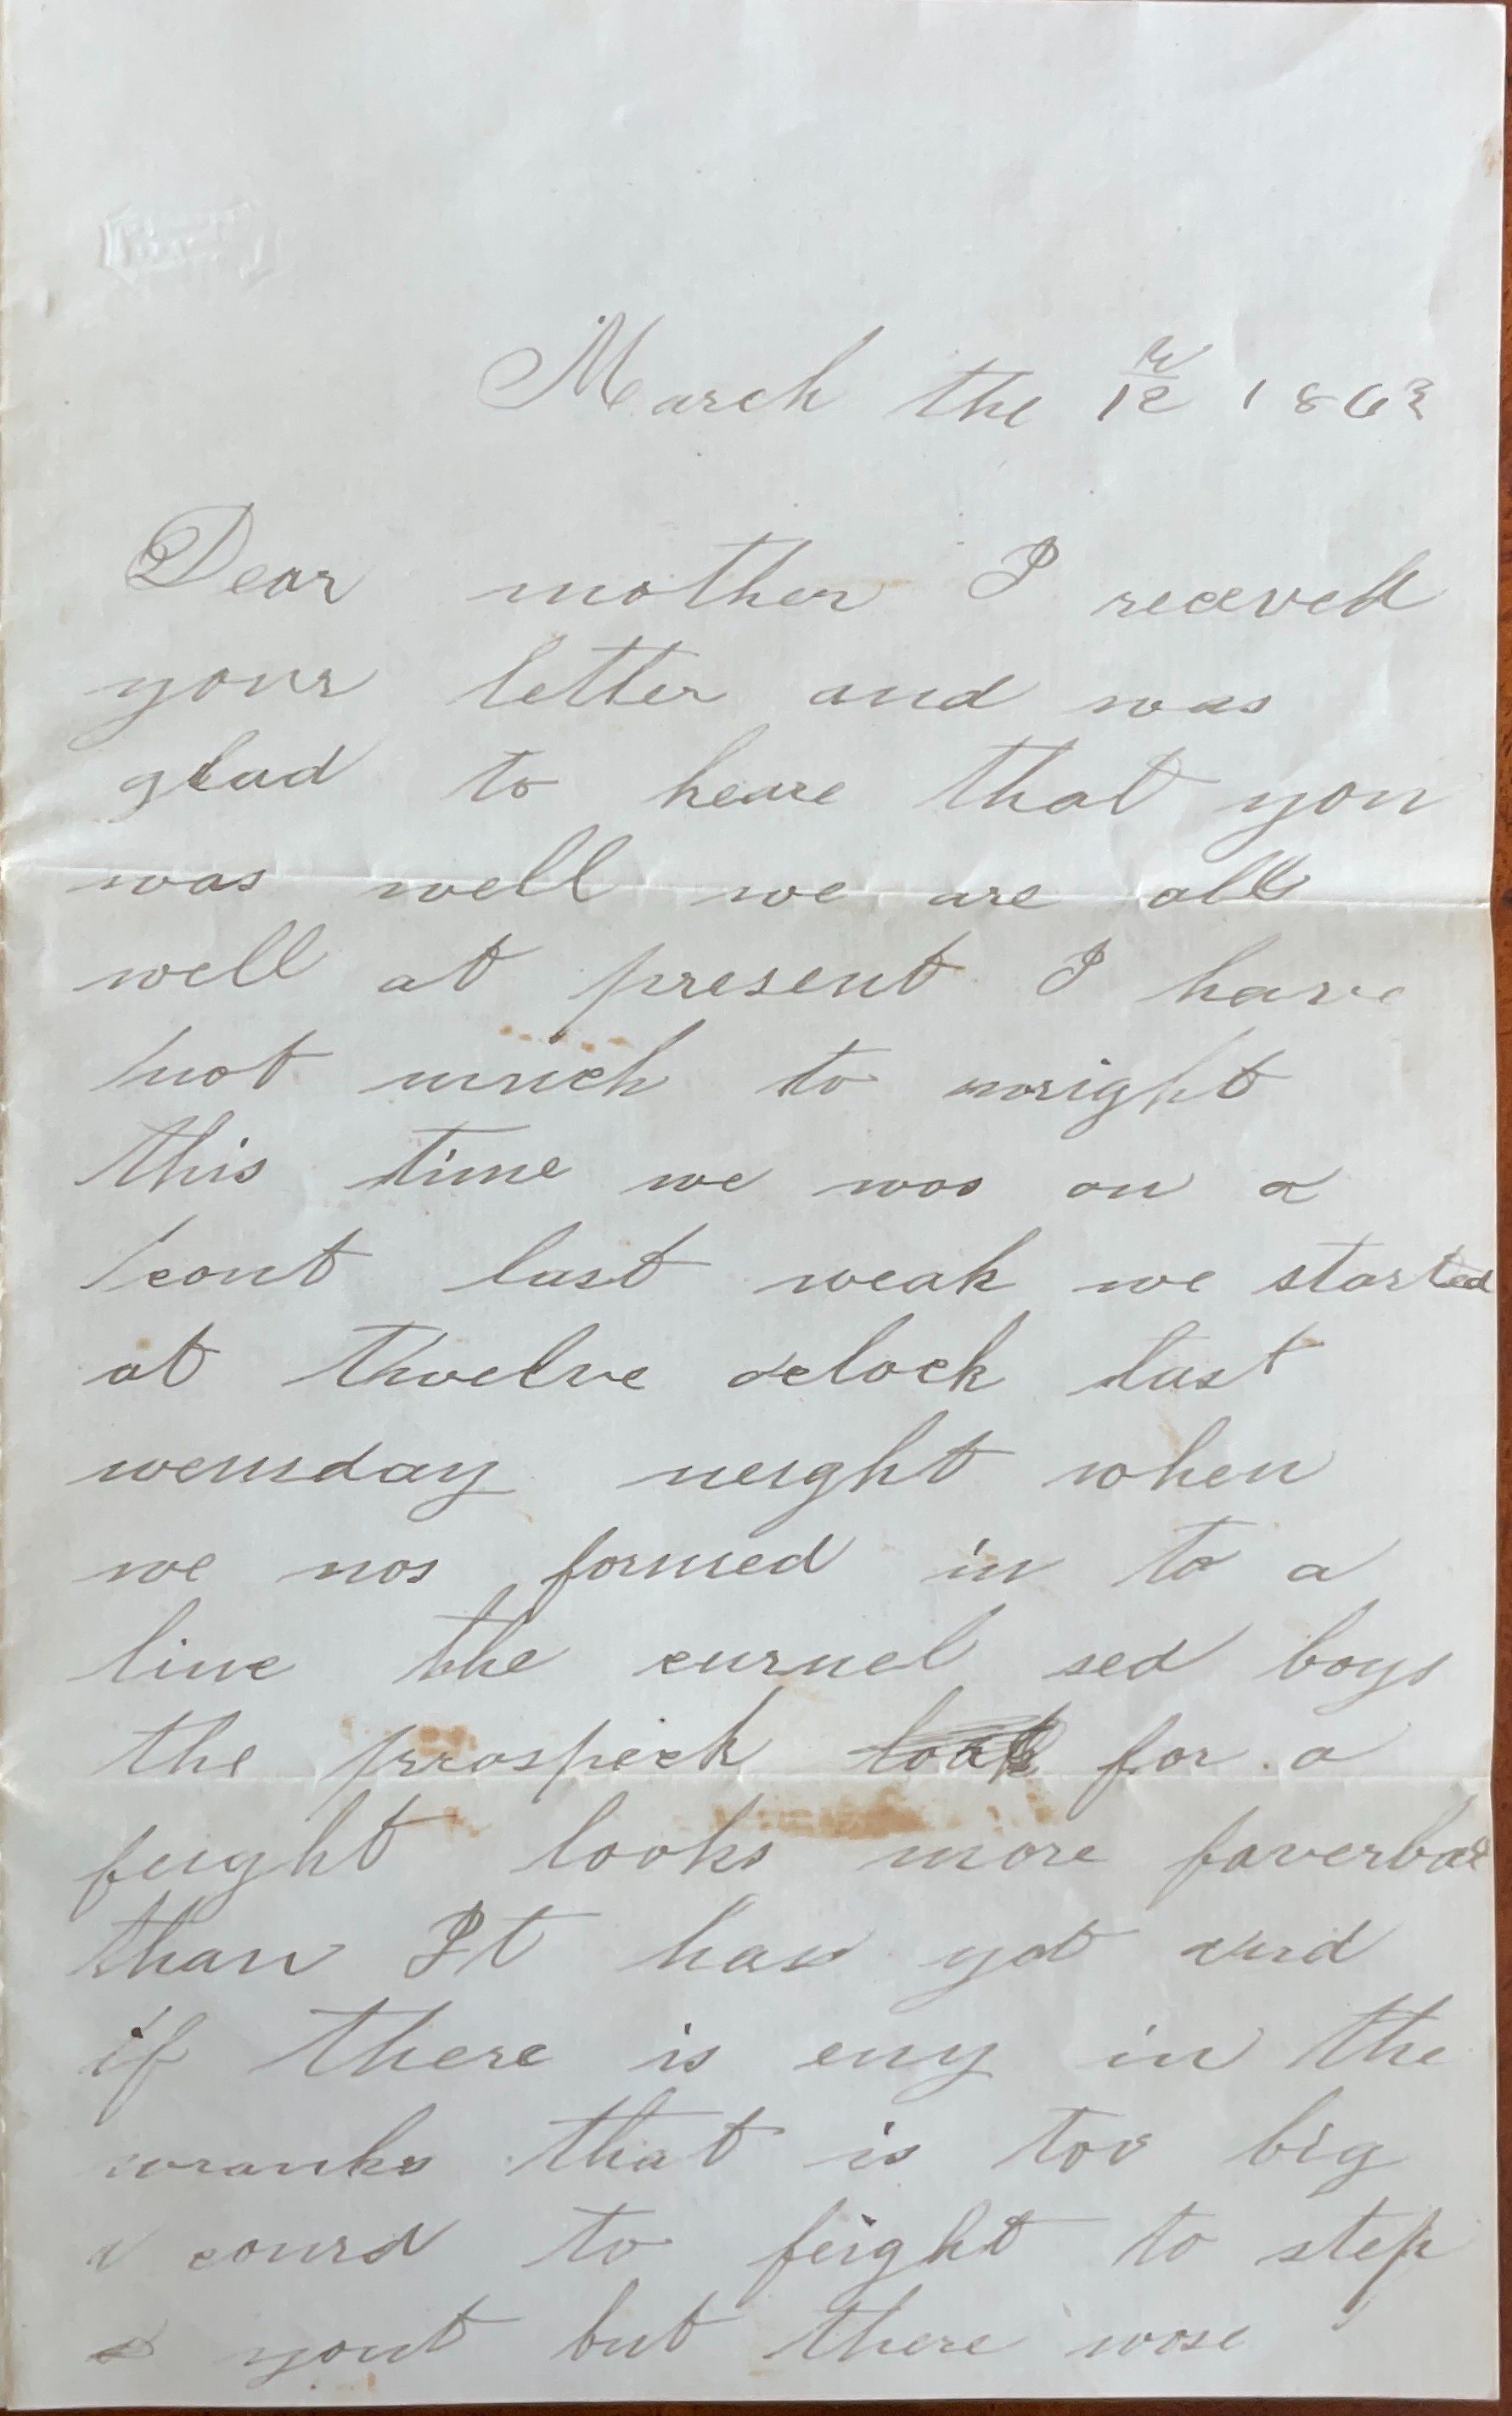 March the 12 1863
Dear mother I receved
your letter and was
glad to heare that you
was well we are all
well at present I have
not much to wright
this time we was on a
scout last weak we started
at twelve oclock last
wensday neight when
we wos formed in to a
line the curnel sed boys
the prrospeck for a
feight looks more faverbal
than It has yot and
if there is eny in the
wranks that is too big
a courd to feight to step
yout but there wose